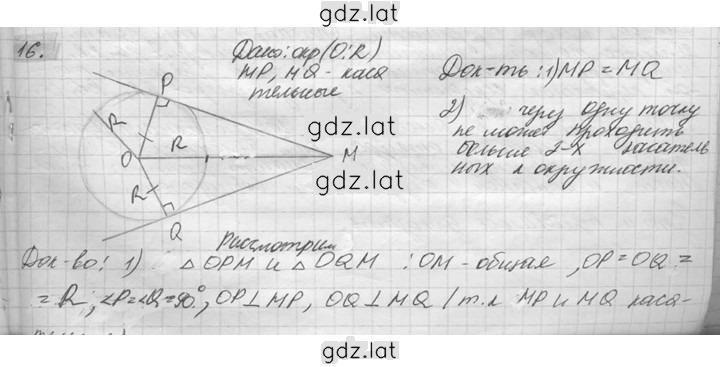 gdz.lat
16.
Дано: окр(O;R)
MP, MQ - каса
тельные
Док-ть: 1) MP = MQ
2) через одну точку
не может проходить
больше 2-х касатель
ных к окружности.
P
R
O
R
M
R
Q
gdz.lat
gdz.lat
Рассмотрим
Док-во: 1) △OPM и △OQM : OM - общая, OP = OQ =
= R, ∠P = ∠Q = 90°, OP ⊥ MP, OQ ⊥ MQ / т.к MP и MQ каса-
gdz.lat